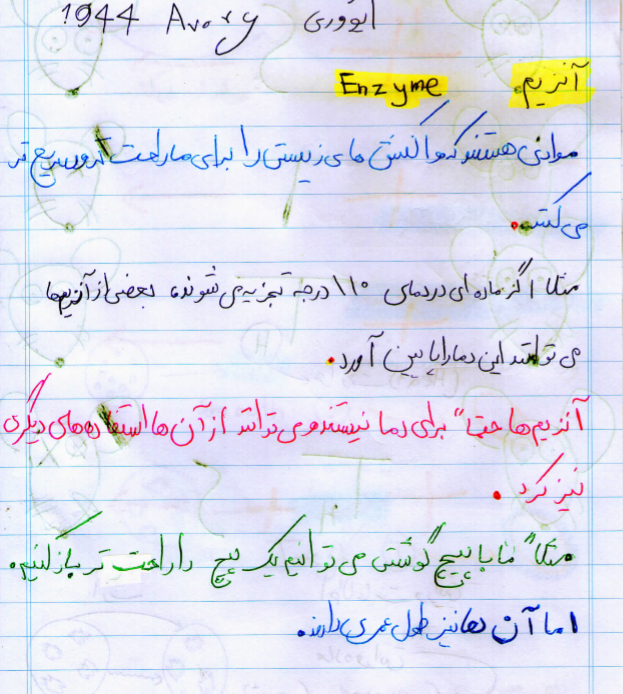 ایووری Avery 1944
آنزیم Enzyme
موادی هستند که واکنش های زیستی را برای ما راحت تر و سریع تر
می کنند.
مثلا اگر ماده ای در دمای ۱۱۰ درجه تجزیه می شوند، بعضی از آنزیم‌ها
می توانند این دما را پایین آورد.
آنزیم ها حتما" برای دما نیستند و می توانند از آن ها استفاده های دیگری
نیز کرد.
مثلا" ما با پیچ گوشتی می توانیم یک پیچ را راحت تر باز کنیم.
اما آن ها نیز طول عمری دارند.